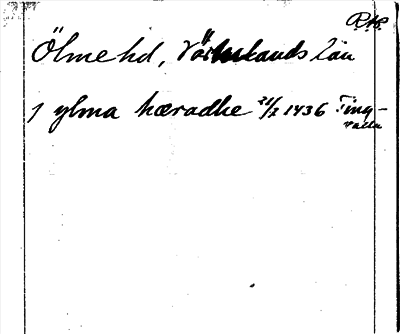 RAP
Ölme hd, Värmlands län
J ylma hæradhe 21/2 1436 Ting-
valla